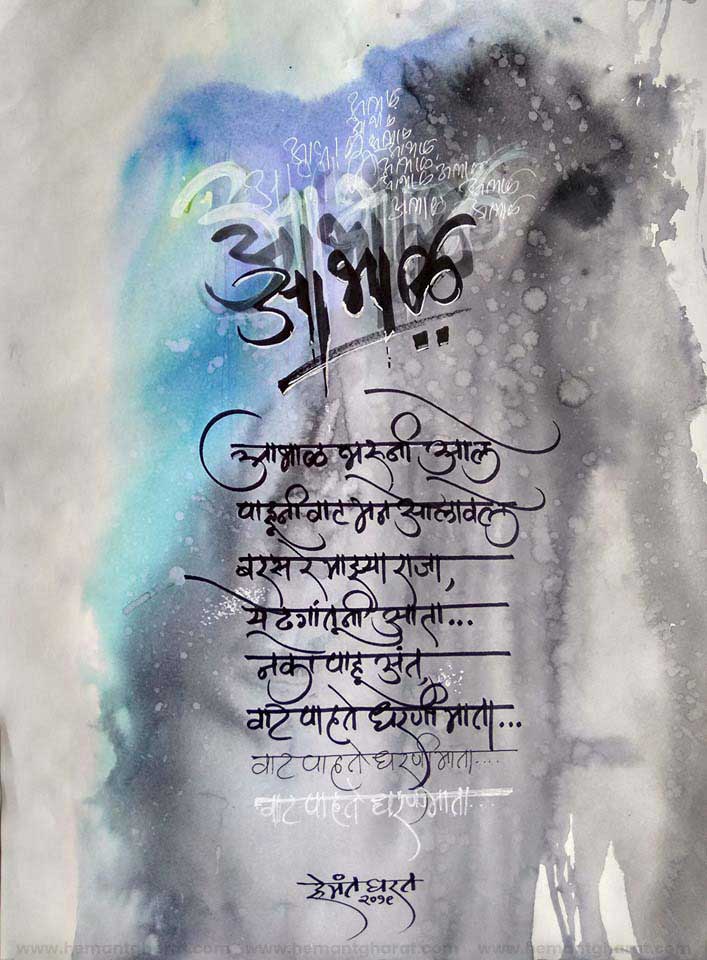 आभाळ
आभाळ
आभाळ
आभाळ
आभाळ
आभाळ आभाळ
आभाळ आभाळ
आभाळ..
आभाळ भरुनी आले
पाहूनी वाट मन ओलावले
बरस रे माझ्या राजा,
ये ढगांतूनी आता...
नको पाहू अंत,
वाट पाहते धरणी माता...
वाट पाहते धरणी माता....
वाट पाहते धरणी माता....
हेमंत घरत
२०१९
www.hemantgharat.com www.hemantgharat.com www.hemantgharat.com